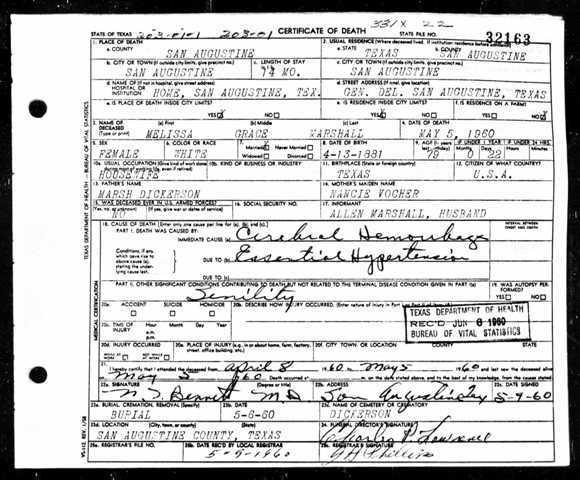 331 X 22
STATE OF TEXAS 203-01-1 203-01 CERTIFICATE OF DEATH STATE FILE NO. 32163
1. PLACE OF DEATH 2. USUAL RESIDENCE (Where deceased lived. If institution: residence before admission)
a. COUNTY SAN AUGUSTINE a. STATE TEXAS b. COUNTY SAN AUGUSTINE
b. CITY OR TOWN (If outside city limits, give precinct no.) c. LENGTH OF STAY c. CITY OR TOWN (If outside city limits, give precinct no.)
SAN AUGUSTINE MO. SAN AUGUSTINE
d. NAME OF (If not in hospital, give street address) d. STREET ADDRESS (If rural, give location)
HOSPITAL OR INSTITUTION HOME, SAN AUGUSTINE, TEX. GEN. DEL. SAN AUGUSTINE, TEXAS
e. IS PLACE OF DEATH INSIDE CITY LIMITS? e. IS RESIDENCE INSIDE CITY LIMITS? f. IS RESIDENCE ON A FARM?
YES NO YES NO YES NO
3. NAME OF DECEASED (a) First (b) Middle (c) Last 4. DATE OF DEATH
(Type or print) MELISSA GRACE MARSHALL MAY 5, 1960
5. SEX 6. COLOR OR RACE 7. Married Never Married 8. DATE OF BIRTH 9. AGE IF UNDER 1 YEAR IF UNDER 24 HRS.
FEMALE WHITE Widowed Divorced 4-13-1881 79 0 22
10a. USUAL OCCUPATION (Give kind of work done 10b. KIND OF BUSINESS OR INDUSTRY 11. BIRTHPLACE (State or foreign country) 12. CITIZEN OF WHAT COUNTRY?
HOUSEWIFE TEXAS U.S.A.
13. FATHER'S NAME 14. MOTHER'S MAIDEN NAME
MARSH DICKERSON NANCIE VOCHER
15. WAS DECEASED EVER IN U.S. ARMED FORCES? 16. SOCIAL SECURITY NO. 17. INFORMANT
NO ALLEN MARSHALL, HUSBAND
18. CAUSE OF DEATH [Enter only one cause per line for (a), (b), and (c).] INTERVAL BETWEEN ONSET AND DEATH
PART I. DEATH WAS CAUSED BY:
IMMEDIATE CAUSE (a) Cerebral Hemorrhage
Conditions, if any, which gave rise to above cause (a), stating the underlying cause last. DUE TO (b) Essential Hypertension
DUE TO (c)
PART II. OTHER SIGNIFICANT CONDITIONS CONTRIBUTING TO DEATH BUT NOT RELATED TO THE TERMINAL DISEASE CONDITION GIVEN IN PART I(a) 19. WAS AUTOPSY PERFORMED?
Senility YES NO
20a. ACCIDENT SUICIDE HOMICIDE 20b. DESCRIBE HOW INJURY OCCURRED.
TEXAS DEPARTMENT OF HEALTH
REC'D JUN 6 1960
BUREAU OF VITAL STATISTICS
20c. TIME OF INJURY Hour Month Day Year
a.m.
p.m.
20d. INJURY OCCURRED 20e. PLACE OF INJURY (e.g., in or about home, farm, factory, street, office building, etc.) 20f. CITY, TOWN, OR LOCATION COUNTY STATE
WHILE AT WORK NOT WHILE AT WORK
21. I hereby certify that I attended the deceased from April 8 1960 to May 5 1960 and last saw the deceased alive
on May 5 1960 Death occurred at m. on the date stated above, and to the best of my knowledge, from the causes stated.
22a. SIGNATURE (Degree or title) 22b. ADDRESS 22c. DATE SIGNED
Bennett M.D. San Augustine, Tex 5-9-60
23a. BURIAL, CREMATION, REMOVAL (Specify) 23b. DATE 23c. NAME OF CEMETERY OR CREMATORY
BURIAL 5-6-60 DICKERSON
23d. LOCATION (City, town, or county) (State) 24. FUNERAL DIRECTOR'S SIGNATURE
SAN AUGUSTINE COUNTY, TEXAS Charlie P. Lawrence
25a. REGISTRAR'S FILE NO. 25b. DATE REC'D BY LOCAL REGISTRAR 25c. REGISTRAR'S SIGNATURE
5-9-1960 Phillips
TEXAS DEPARTMENT OF HEALTH - BUREAU OF VITAL STATISTICS
MEDICAL CERTIFICATION